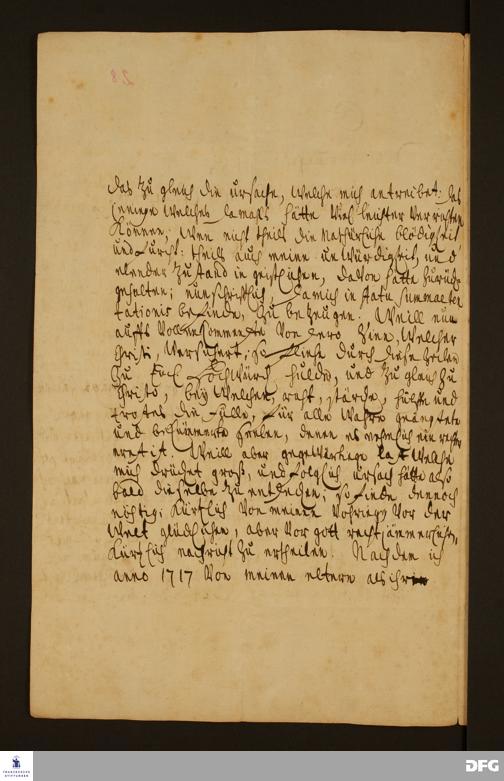 28
das zu gleich die ursache, welche mich antreibet das
jenige welches damahls hätte viel leichter verrichten
können; wen nicht theils die natürliche blödigkeit
und furcht: theils auch meine unwürdigkeit, und
elender zustand in geistlichen, davon hätte zurück
gehalten; nun schrifftlich, da mich in statu summae ten
tationis befinde, zu bezeugen. Weill nun
auffs vollenkommenste von dero Sinn, welcher
Christi, versichert; so fliehe durch diese zeilen
zu huld, und zu gleich zu
Christo, bey welchen raht, stärcke, hülffe und
trostes die fülle, für alle wahre geängstete
und bekümmerte seelen, denen es ein rechter
ernst ist. Weill aber gegenwärtige last welche
mich drücket groß, und folglich ursach hätte also
bald dieselbe zu entdecken; so finde dennoch
nöthig; kürtzlich von meinen vor der
Welt glücklichen, aber vor gott recht jämmerlichen,
kürtzlich nachricht zu ertheilen. Nachdem ich
anno 1717 von meinen eltern als
FRANCKESCHE
STIFTUNGEN
DFG